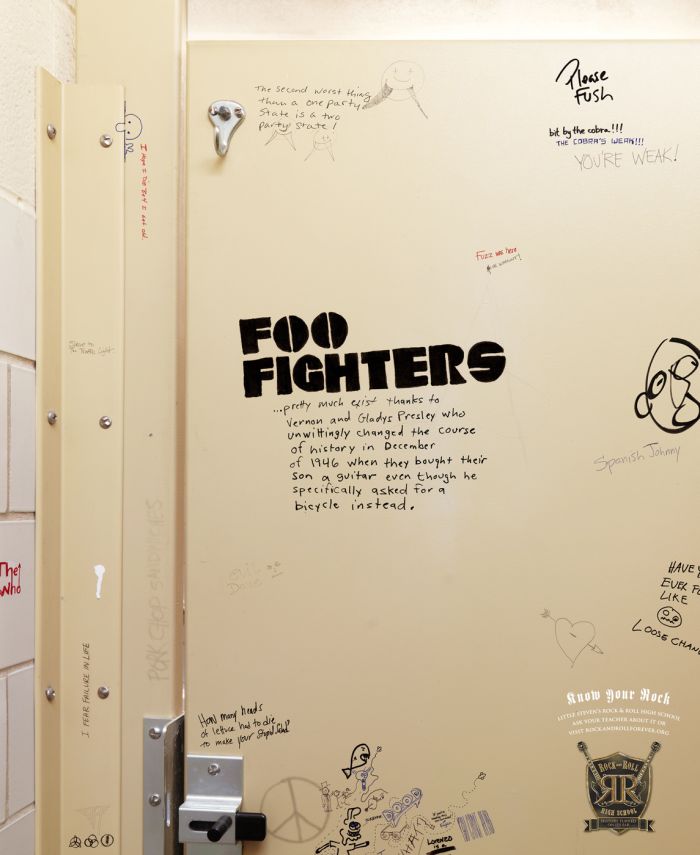 The second worst thing
than a one party
state is a two
party state!
Please
Fush
bit by the cobra!!!
THE COBRA'S WEAK!!!
YOU'RE WEAK!
Fuzz was here
FOO
FIGHTERS
...pretty much exist thanks to
Vernon and Gladys Presley who
unwittingly changed the course
of history in December
of 1946 when they bought their
son a guitar even though he
specifically asked for a
bicycle instead.
Spanish Johnny
The
Who
PORK CHOP SANDWICHES
I FEAR FAILURE IN LIFE
Evil
Dave
HAVE
EVER
LIKE
LOOSE CHAN
How many heads
of lettuce had to die
to make your stupid salad?
Know Your Rock
LITTLE STEVEN'S ROCK & ROLL HIGH SCHOOL
ASK YOUR TEACHER ABOUT IT OR
VISIT ROCKANDROLLFOREVER.ORG
ROCK AND ROLL
RR
HIGH SCHOOL